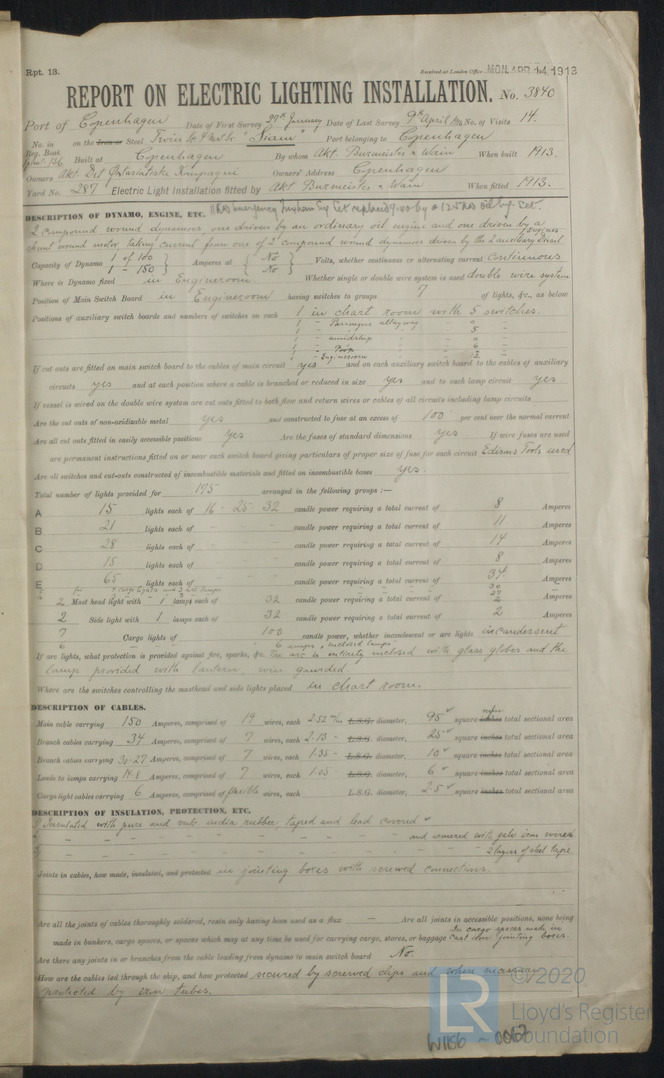 Rpt. 13.
Received at London Office MON. APR. 14 1913
REPORT ON ELECTRIC LIGHTING INSTALLATION. No. 3840
Port of Copenhagen Date of First Survey 29th January Date of Last Survey 9th April No. of Visits 14.
No. in Reg. Book on the Iron or Steel Twin Sc "Siam" Port belonging to Copenhagen
Built at Copenhagen By whom Akt. Burmeister & Wain When built 1913.
Owners Akt. Det Østasiatiske Kompagni Owners' Address Copenhagen
Yard No. 287 Electric Light Installation fitted by Akt. Burmeister & Wain When fitted 1913.
DESCRIPTION OF DYNAMO, ENGINE, ETC.
2 compound wound dynamoes, one driven by an ordinary oil engine and one driven by a
shunt wound motor, taking current from one of 2 compound wound dynamoes driven by the 2 auxiliary Diesel engines
Capacity of Dynamo 1 of 100 Amperes at No Volts, whether continuous or alternating current continuous
1 - 150 No
Where is Dynamo fixed in Engineroom Whether single or double wire system is used double wire system
Position of Main Switch Board in Engineroom having switches to groups 7 of lights, &c., as below
Positions of auxiliary switch boards and numbers of switches on each 1 in chart room with 5 switches.
1 - Passengers alleyway
1 - amidship - 6 -
1 - Poop
1 - Engineroom
If cut outs are fitted on main switch board to the cables of main circuit yes and on each auxiliary switch board to the cables of auxiliary
circuits yes and at each position where a cable is branched or reduced in size yes and to each lamp circuit yes.
If vessel is wired on the double wire system are cut outs fitted to both flow and return wires or cables of all circuits including lamp circuits
Are the cut outs of non-oxidizable metal yes and constructed to fuse at an excess of 100 per cent over the normal current
Are all cut outs fitted in easily accessible positions yes Are the fuses of standard dimensions yes If wire fuses are used
are permanent instructions fitted on or near each switch board giving particulars of proper size of fuse for each circuit Edisons used
Are all switches and cut-outs constructed of incombustible materials and fitted on incombustible bases yes.
Total number of lights provided for 175 arranged in the following groups :—
A 15 lights each of 16 - 25 - 32 candle power requiring a total current of 8 Amperes
B 21 lights each of candle power requiring a total current of 11 Amperes
C 28 lights each of candle power requiring a total current of 14 Amperes
D 15 lights each of candle power requiring a total current of 8 Amperes
E 65 lights each of candle power requiring a total current of 34 Amperes
7 cargo lights and 3 arc lamps 30
27
2 Mast head light with 1 lamps each of 32 candle power requiring a total current of 2 Amperes
2 Side light with 1 lamps each of 32 candle power requiring a total current of 2 Amperes
7 Cargo lights of 100 candle power, whether incandescent or arc lights incandescent
6 6 amps, inclosed lamps.
If arc lights, what protection is provided against fire, sparks, &c. The arc is entirely inclosed with glass globes and the
lamp provided with lantern, wire guarded.
Where are the switches controlling the masthead and side lights placed in chart room.
DESCRIPTION OF CABLES.
Main cable carrying 150 Amperes, comprised of 19 wires, each 2.52 m/m L.S.G. diameter, 95 square inches total sectional area
Branch cables carrying 34 Amperes, comprised of 7 wires, each 2.13 - L.S.G. diameter, 25 square inches total sectional area
Branch cables carrying 30-27 Amperes, comprised of 7 wires, each 1.35 - L.S.G. diameter, 10 square inches total sectional area
Leads to lamps carrying 14.8 Amperes, comprised of 7 wires, each 1.05 - L.S.G. diameter, 6 square inches total sectional area
Cargo light cables carrying 6 Amperes, comprised of flexible wires, each L.S.G. diameter, 2.5 square inches total sectional area
DESCRIPTION OF INSULATION, PROTECTION, ETC.
Insulated with pure and vulc. india rubber, taped and lead covered
and covered with galv. iron wires
2 layers of steel tape
Joints in cables, how made, insulated, and protected in jointing boxes with screwed connections.
Are all the joints of cables thoroughly soldered, resin only having been used as a flux — Are all joints in accessible positions, none being
made in bunkers, cargo spaces, or spaces which may at any time be used for carrying cargo, stores, or baggage In cargo spaces made in cast iron jointing boxes.
Are there any joints in or branches from the cable leading from dynamo to main switch board No.
How are the cables led through the ship, and how protected secured by screwed clips and when necessary
protected by iron tubes.
LR
©2020
Lloyd's Register
Foundation
W1186 - 0067